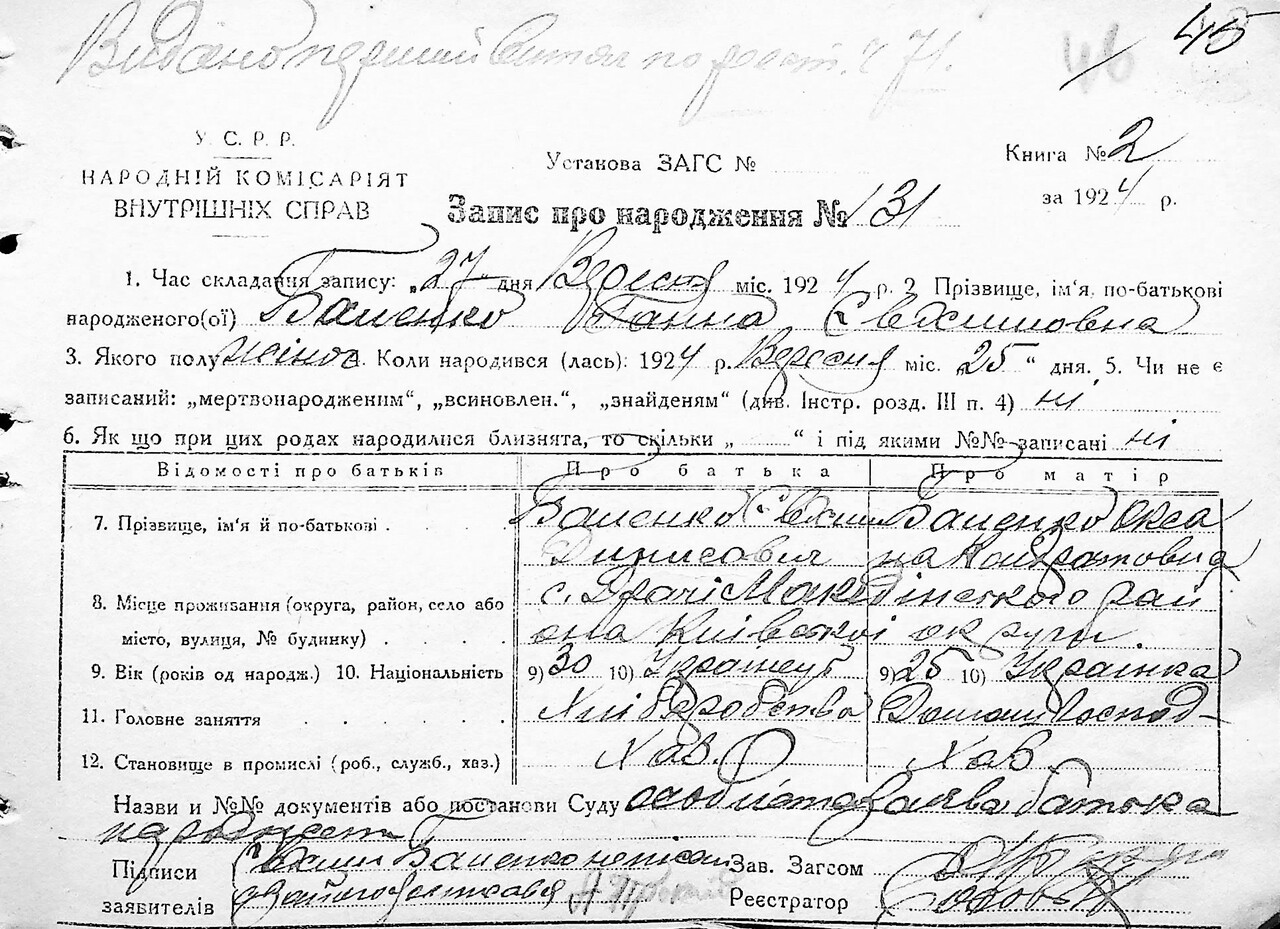 Видано перший витяг по реєст. ч 71.
46 45
У. С. Р. Р.
НАРОДНІЙ КОМІСАРІЯТ
ВНУТРІШНІХ СПРАВ
Установа ЗАГС №
Книга № 2
за 1924 р.
Запис про народження № 131
1. Час складання запису: „27" дня Вересня міс. 1924 р. 2 Прізвище, ім'я, по-батькові
народженого(ої) Баленко Ганна Євхимовна
3. Якого полу жіноч. Коли народився (лась): 1924 р. Вересня міс. „25" дня. 5. Чи не є
записаний: „мертвонародженим", „всиновлен.", „знайденям" (див. Інстр. розд. III п. 4) ні
6. Як що при цих родах народилися близнята, то скільки „ " і під якими №№ записані ні
Відомості про батьків Про батька Про матір
7. Прізвище, ім'я й по-батькові Баленко Євхим Баленко Окса
Динисович на Кондратовна
8. Місце проживання (округа, район, село або с. Драчі Макарінського рай
місто, вулиця, № будинку) она Київської округи.
9. Вік (років од народж.) 10. Національність 9) 30 10) Українець 9) 25 10) Українка
11. Головне заняття Хліберобство Домашн Господ-
12. Становище в промислі (роб., служб., хаз.) Хаз. Хаз.
Назви и №№ документів або постанови Суду особиста заява батька
Підписи Євхим Баленко неписьм Зав. Загсом
заявителів за його розписався Реєстратор